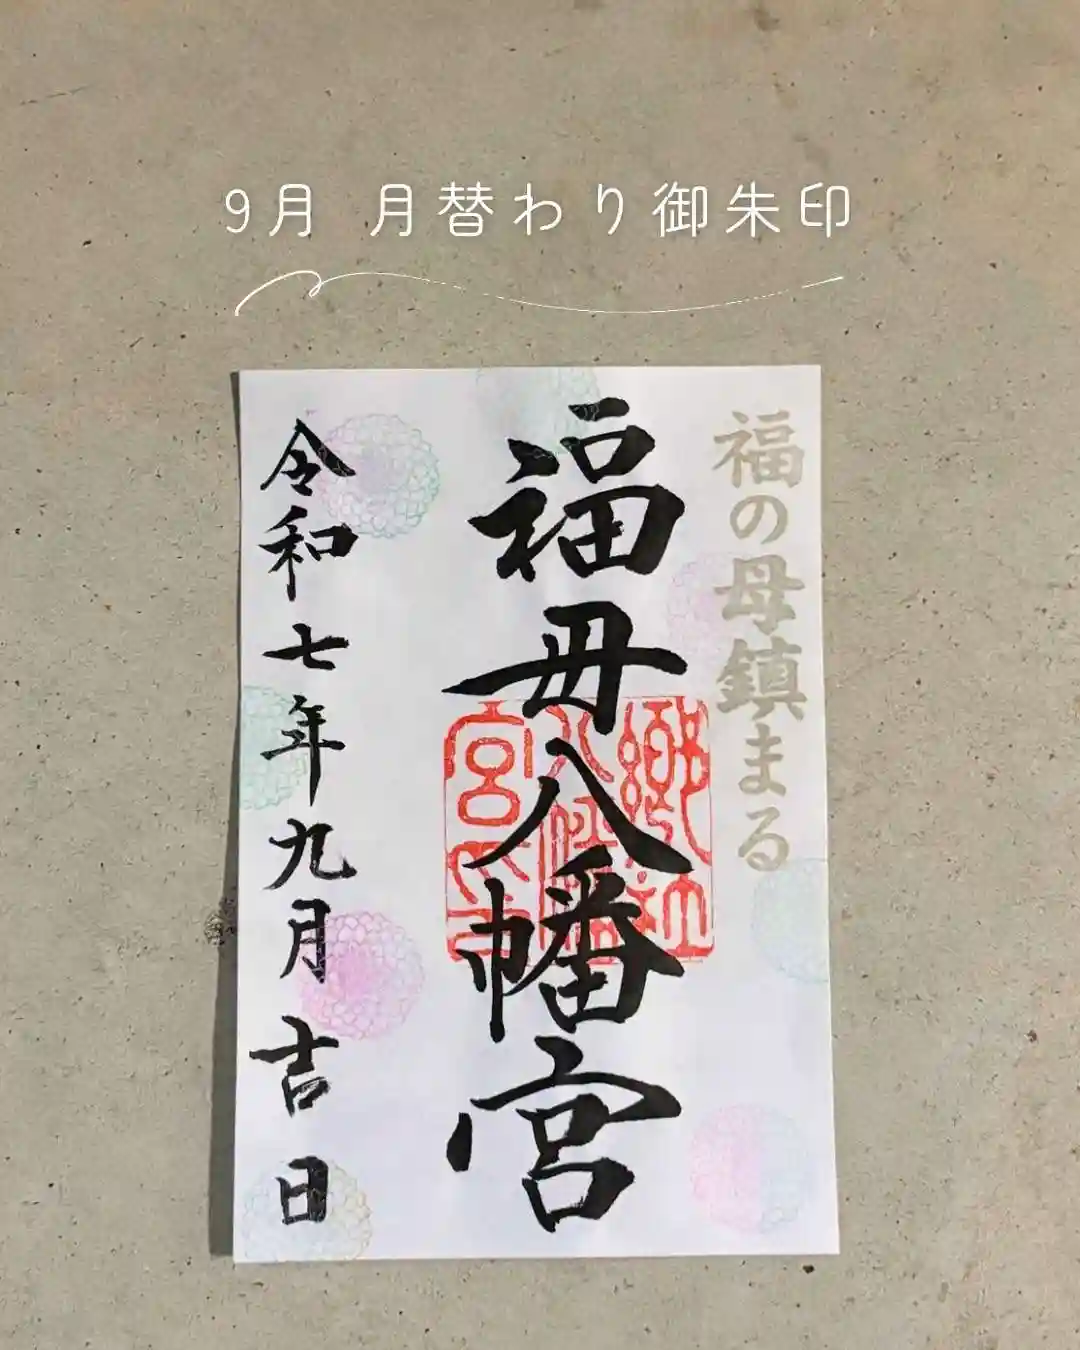 9月 月替わり御朱印
福の母鎮まる
福母八幡宮
郷社八幡宮之印
令和七年九月吉日